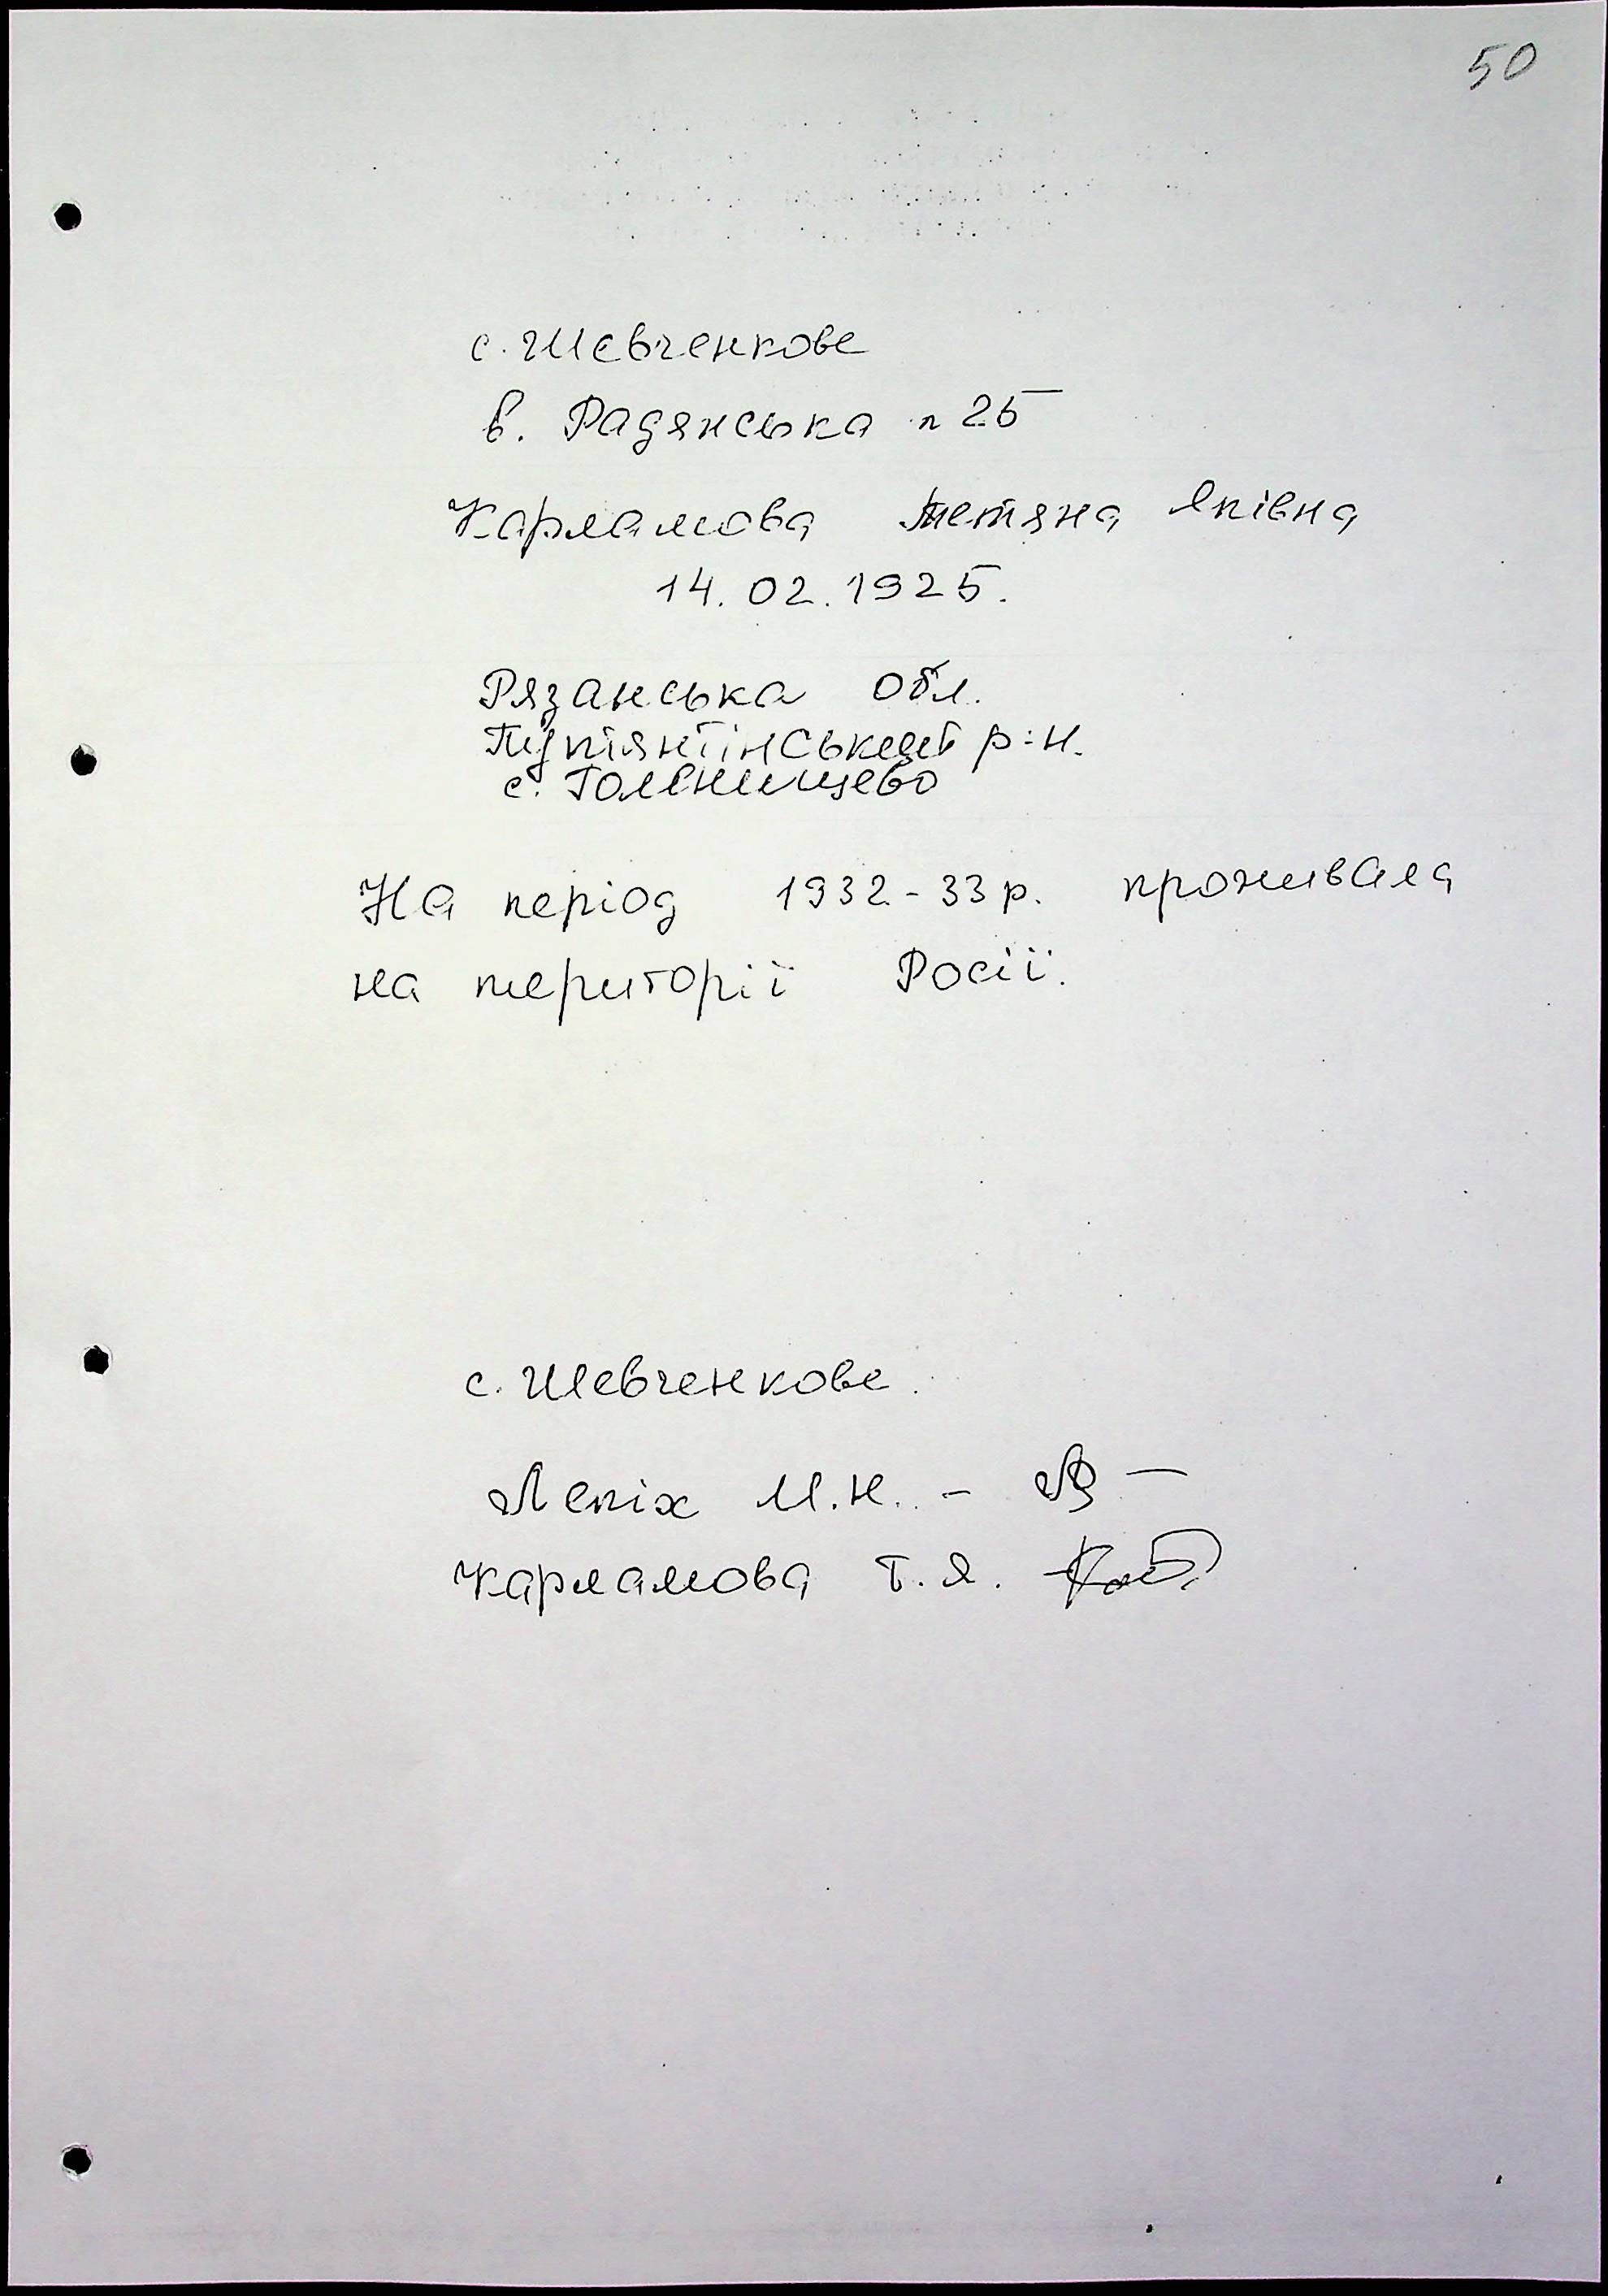 50
с. Шевченкове
в. Радянська 25
Карламова Тетяна Яківна
14.02.1925.
Рязанська обл.
р-н.
с. Голенищево
На період 1932-33 р. проживала
на території Росії.
с. Шевченкове.
Лепіх М.Н. -
Карламова Т.Я.